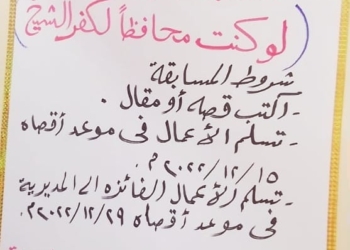 (لو كنت محافظاً لكفر الشيخ)
شروط المسابقة
- اكتب قصه أو مقال .
- تسلم الأعمال فى موعد أقصاه
١٥/١٢/٢٠٢٢م.
- تسلم الأعمال الفائزه الى المديرية
فى موعد أقصاه ٢٩/١٢/٢٠٢٢م.